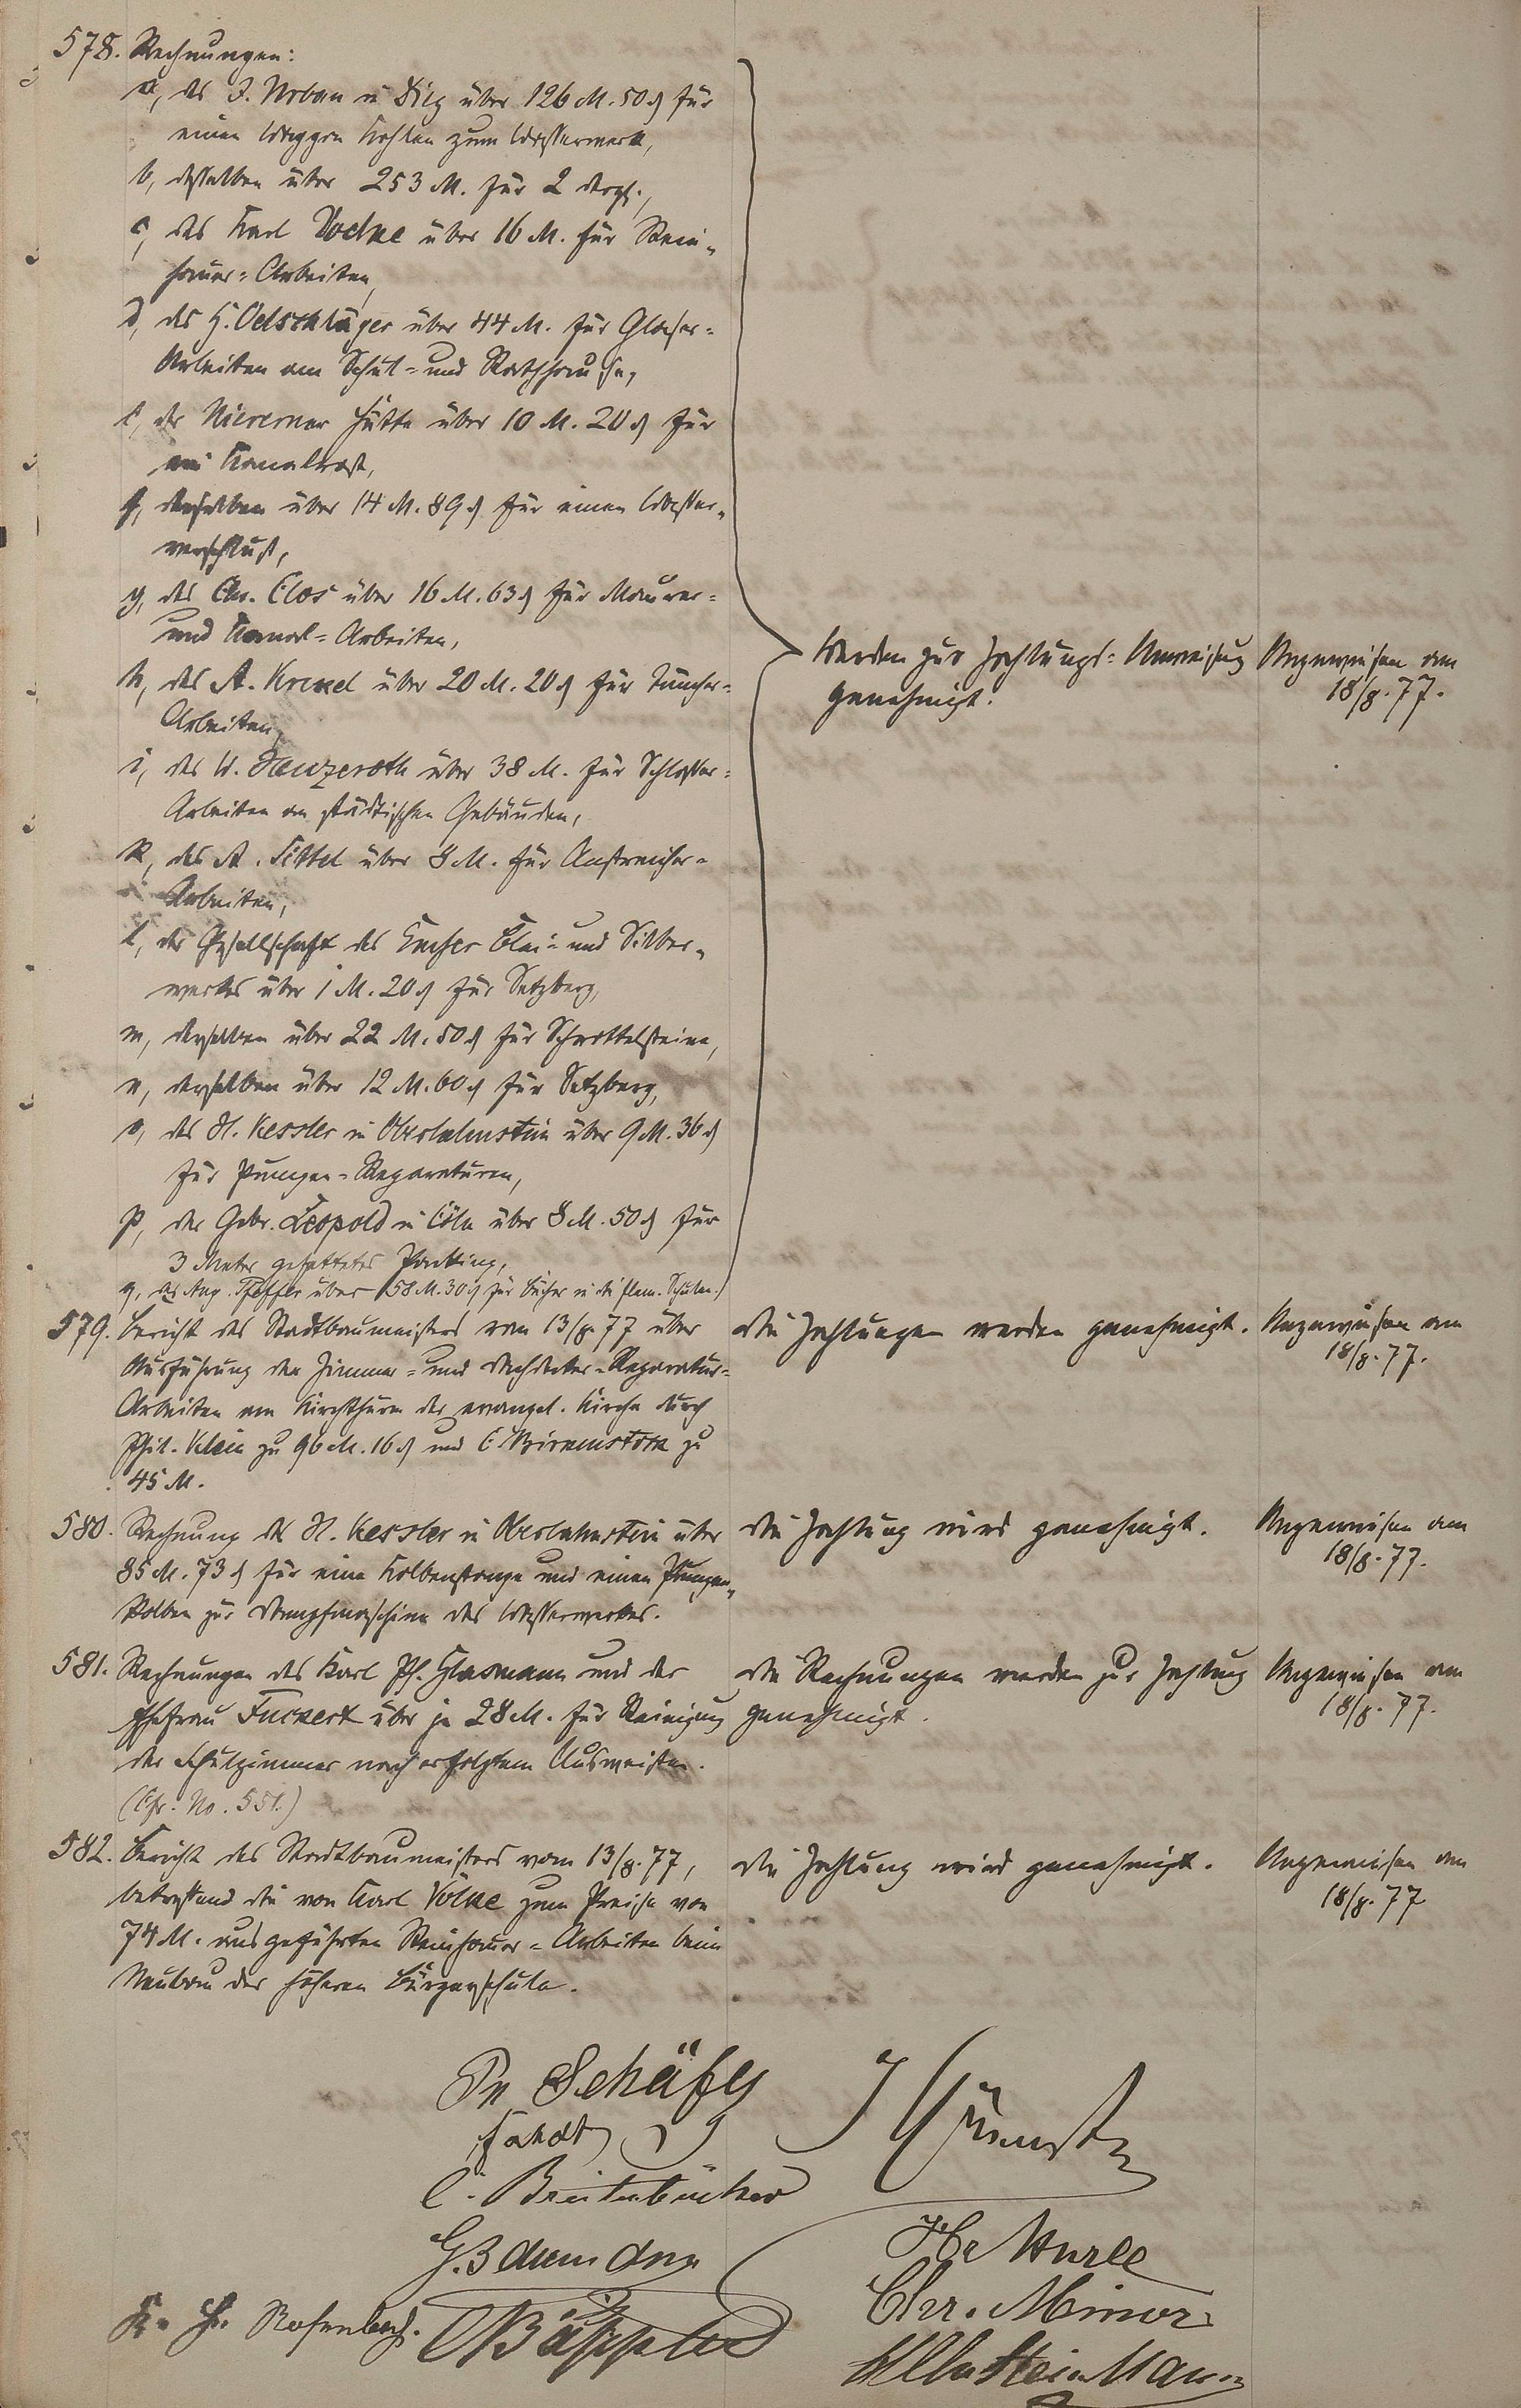 578. Rechnungen:
a, des J. Urban in Diez über 126 M. 50 ₰ für
einen Waggon Kohlen zum Wasserwerk,
b, desselben über 253 M. für 2 dergl.,
c, des Karl Voelke über 16 M. für Stein-
hauer-Arbeiten,
d, des H. Oelschläger über 44 M. für Glaser-
Arbeiten am Schul- und Rathhause,
e, der Nieverner Hütte über 10 M. 20 ₰ für
ein Kanalrost,
f, derselben über 14 M. 89 ₰ für einen Wasser-
verschluß,
g, des Chr. Clos über 16 M. 63 ₰ für Maurer-
und Kanal-Arbeiten,
h, des A. Krekel über 20 M. 20 ₰ für Tüncher-
Arbeiten,
i, des W. Henzeroth über 38 M. für Schlosser-
Arbeiten an städtischen Gebäuden,
k, des A. Sittel über 8 M. für Anstreicher-
Arbeiten,
l, der Gesellschaft des Emser Blei- und Silber-
werkes über 1 M. 20 ₰ für Setzberg,
m, derselben über 22 M. 50 ₰ für Schrottelsteine,
n, derselben über 12 M. 60 ₰ für Setzberg,
o, des H. Kessler in Oberlahnstein über 9 M. 36 ₰
für Pumpen-Reparaturen,
p, der Gebr. Leopold in Cöln über 8 M. 50 ₰ für
3 Meter gefettetes Packing,
q, des Aug. Pfeffer über 58 M. 30 ₰ für Bücher in die Elem. Schulen.
Werden zur Zahlungs-Anweisung
genehmigt.
Angewiesen am
18/8. 77.
579. Bericht des Stadtbaumeisters vom 13/8. 77 über
Ausführung der Zimmer- und Dachdecker-Reparatur-
Arbeiten am Kirchthurm der evangel. Kirche durch
Phil. Klein zu 96 M. 16 ₰ und C. Birkenstock zu
45 M.
Die Zahlungen werden genehmigt.
Angewiesen am
18/8. 77.
580. Rechnung des H. Kessler in Oberlahnstein über
85 M. 73 ₰ für eine Kolbenstange und einen Pumpen-
kolben zur Dampfmaschine des Wasserwerkes.
Die Zahlung wird genehmigt.
Angewiesen am
18/8. 77.
581. Rechnungen des Karl Ph. Glasmann und der
Ehefrau Fuckert über je 28 M. für Reinigung
der Schulzimmer nach erfolgtem Ausweißen.
(Cfr. No. 551.)
Die Rechnungen werden zur Zahlung
genehmigt.
Angewiesen am
18/8. 77.
582. Bericht des Stadtbaumeisters vom 13/8. 77,
betreffend die von Karl Völke zum Preise von
74 M. ausgeführten Steinhauer-Arbeiten beim
Neubau der höheren Bürgerschule.
Die Zahlung wird genehmigt.
Angewiesen am
18/8. 77
Schäfer
C. Breitenbücher
Chr. Minor
Rosenbach.